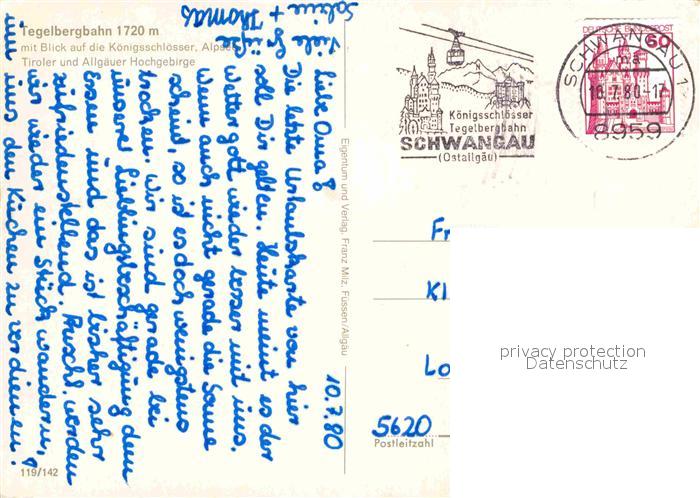 Tegelbergbahn 1720 m
mit Blick auf die Königsschlösser, Alpsee
Tiroler und Allgäuer Hochgebirge
10.7.80
Liebe Oma!
Die letzte Urlaubskarte von hier
soll Dir gelten. Heute meint es der
Wettergott wieder besser mit uns.
Wenn auch nicht gerade die Sonne
scheint, so ist es doch wenigstens
trocken. Wir sind gerade bei
unserer Lieblingsbeschäftigung dem
Essen und das ist bisher sehr
zufriedenstellend. Anschl. werden
wir wieder ein Stück wandern,
um uns den Kuchen zu verdienen!
Viele Grüße
Sabine + Thomas
Eigentum und Verlag, Franz Milz, Füssen/Allgäu
119/142
Königsschlösser
Tegelbergbahn
SCHWANGAU
(Ostallgäu)
DEUTSCHE BUNDESPOST
60
SCHWANGAU 1
ma
10.7.80-17
8959
Fr
Kl
Lo
5620
Postleitzahl
privacy protection
Datenschutz